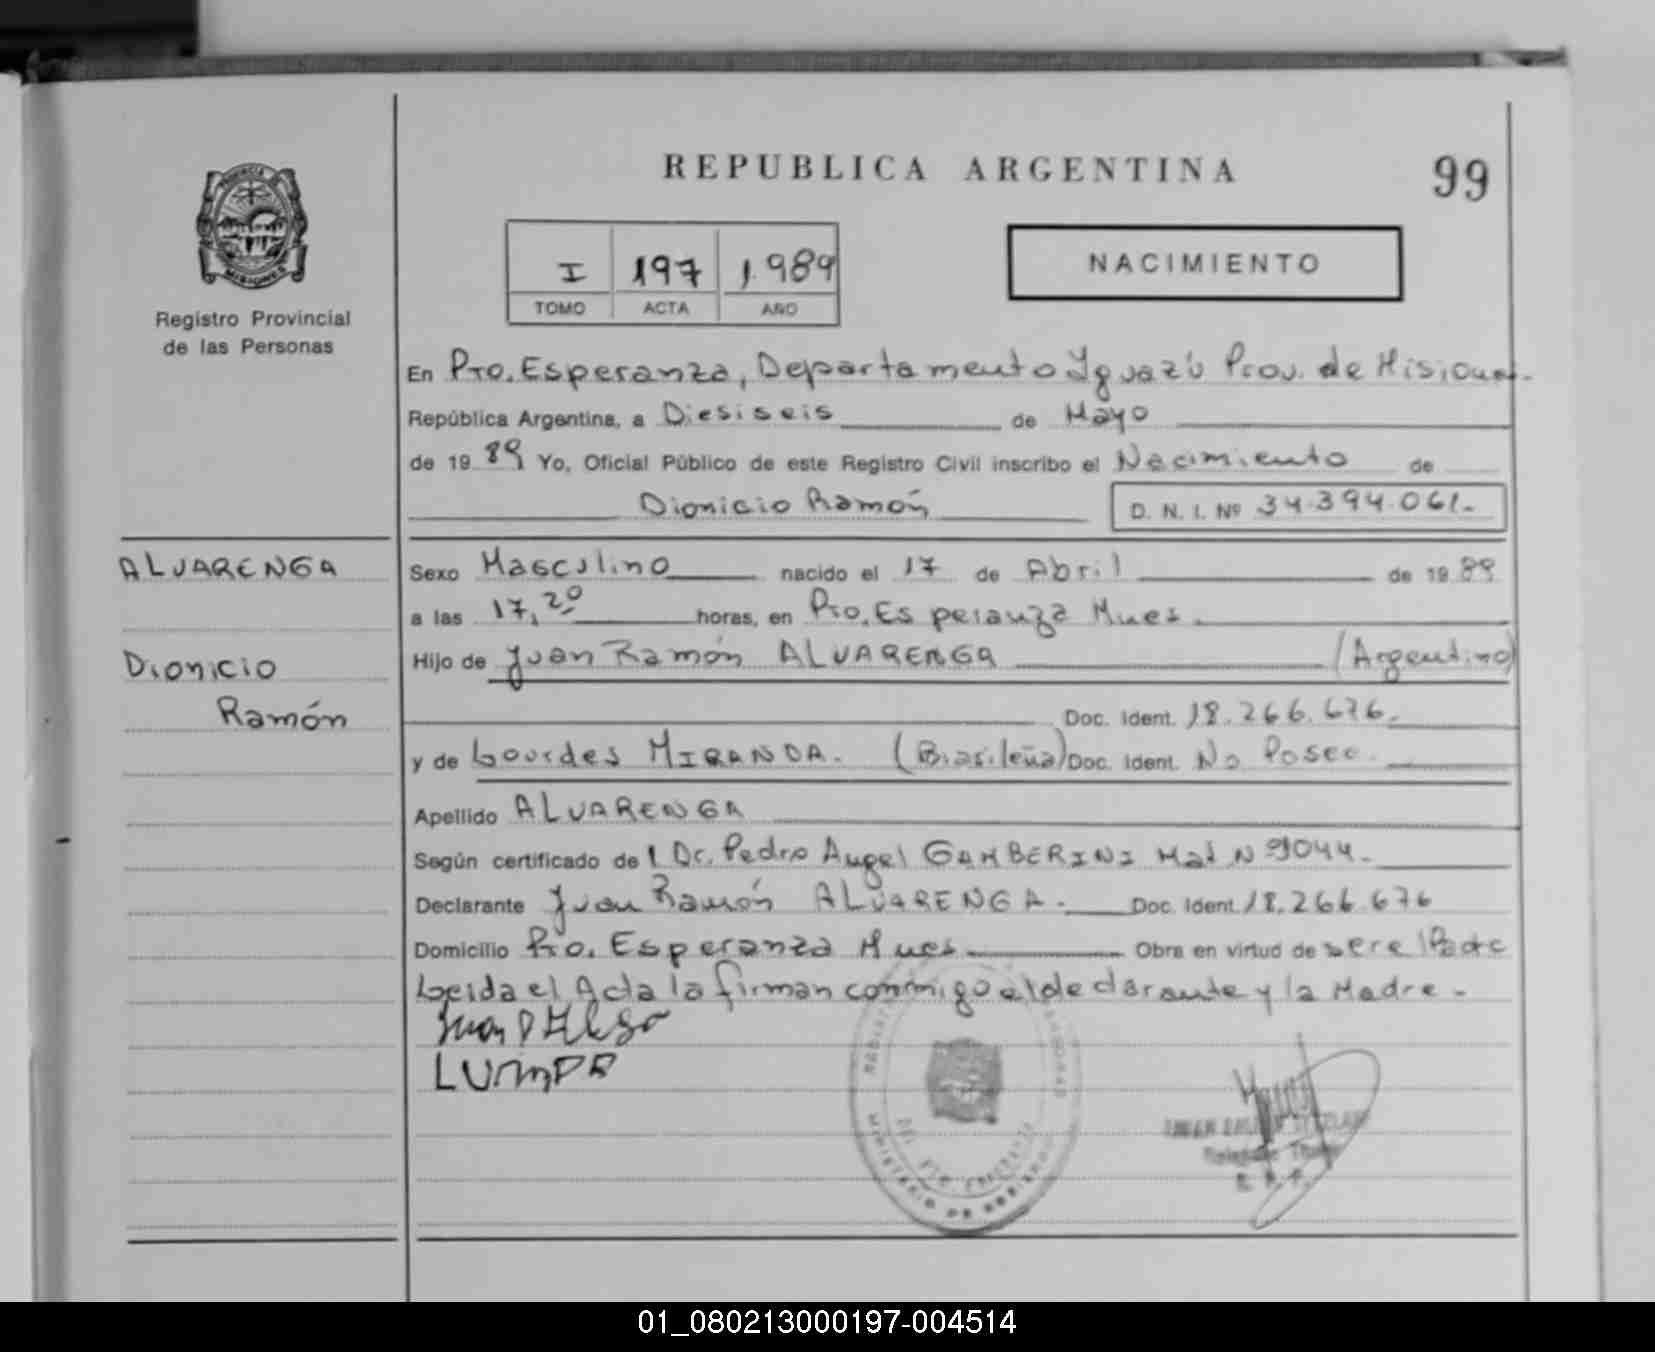 REPUBLICA ARGENTINA
99
MISIONES
Registro Provincial
de las Personas
I 197 1.989
TOMO ACTA AÑO
NACIMIENTO
En Pto. Esperanza, Departamento Yguazú Prov. de Misiones.
República Argentina, a Diesiseis de Mayo
de 19 89 Yo, Oficial Público de este Registro Civil inscribo el Nacimiento de
Dionicio Ramón
D. N. I. Nº 34.394.061.-
ALVARENGA
Dionicio
Ramón
Sexo Masculino nacido el 17 de Abril de 19 89
a las 17,20 horas, en Pto. Esperanza Mnes.
Hijo de Juan Ramón ALVARENGA (Argentino)
Doc. Ident. 18.266.676.
y de Lourdes MIRANDA. (Brasileña) Doc. Ident. No Posee.
Apellido ALVARENGA
Según certificado de l Dr. Pedro Angel GAMBERINI Mat. Nº 1044.
Declarante Juan Ramón ALVARENGA. Doc. Ident. 18.266.676
Domicilio Pto. Esperanza Mnes. Obra en virtud de ser el Padre
Leida el Acta la firman conmigo el declarante y la Madre.-
MINISTERIO DE GOBIERNO
01_080213000197-004514